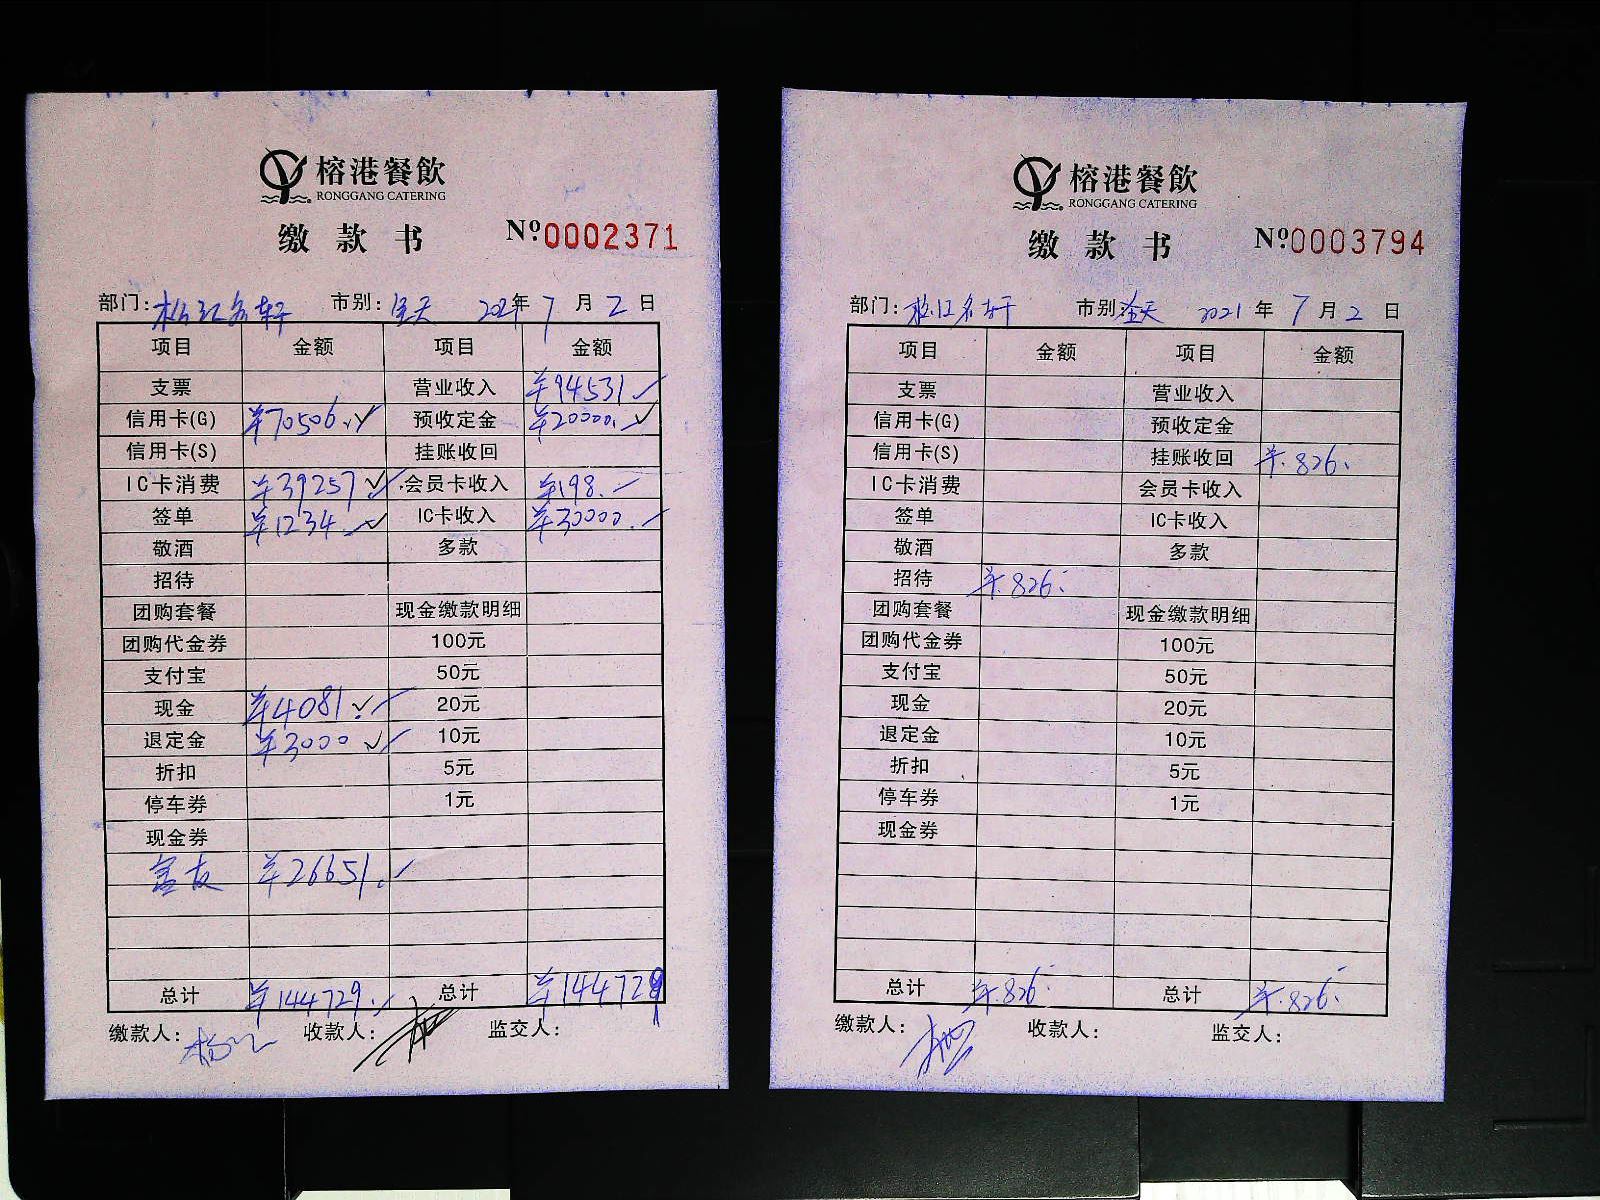 榕港餐飲
RONGGANG CATERING
缴款书 №0002371
部门:松江名轩 市别:全天 2021年7月2日
项目 金额 项目 金额
支票 营业收入 ¥94531
信用卡(G) ¥70506. 预收定金 ¥20000.
信用卡(S) 挂账收回
IC卡消费 ¥39257 会员卡收入 ¥198.
签单 ¥1234. IC卡收入 ¥30000.
敬酒 多款
招待
团购套餐 现金缴款明细
团购代金券 100元
支付宝 50元
现金 ¥4081. 20元
退定金 ¥3000 10元
折扣 5元
停车券 1元
现金券
¥26651.
总计 ¥144729. 总计 ¥144729
缴款人: 收款人: 监交人:
榕港餐飲
RONGGANG CATERING
缴款书 №0003794
部门:松江名轩 市别:全天 2021年7月2日
项目 金额 项目 金额
支票 营业收入
信用卡(G) 预收定金
信用卡(S) 挂账收回 ¥.826.
IC卡消费 会员卡收入
签单 IC卡收入
敬酒 多款
招待 ¥.826.
团购套餐 现金缴款明细
团购代金券 100元
支付宝 50元
现金 20元
退定金 10元
折扣 5元
停车券 1元
现金券
总计 ¥.826. 总计 ¥.826.
缴款人: 收款人: 监交人: